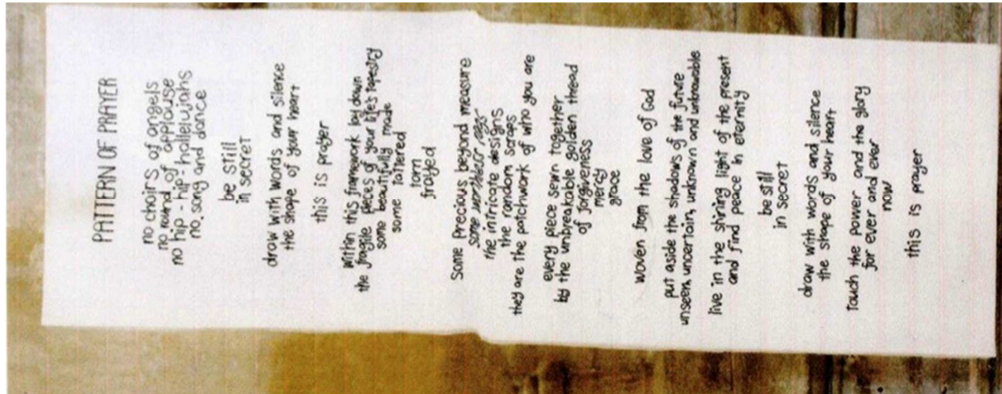 PATTERN OF PRAYER
no choirs of angels
no round of applause
no hip-hip-hallelujahs
no song and dance
be still
in secret
draw with words and silence
the shape of your heart
this is prayer
within this framework lay down
the fragile pieces of your life's tapestry
some beautifully made
some tattered
torn
frayed
some precious beyond measure
some worthless rags
the intricate designs
the random scraps
they are the patchwork of who you are
every piece sewn together
by the unbreakable golden thread
of forgiveness
mercy
grace
woven from the love of God
put aside the shadows of the future
unseen, uncertain, unknown and unknowable
live in the shining light of the present
and find peace in eternity
be still
in secret
draw with words and silence
the shape of your heart
touch the power and the glory
for ever and ever
now
this is prayer